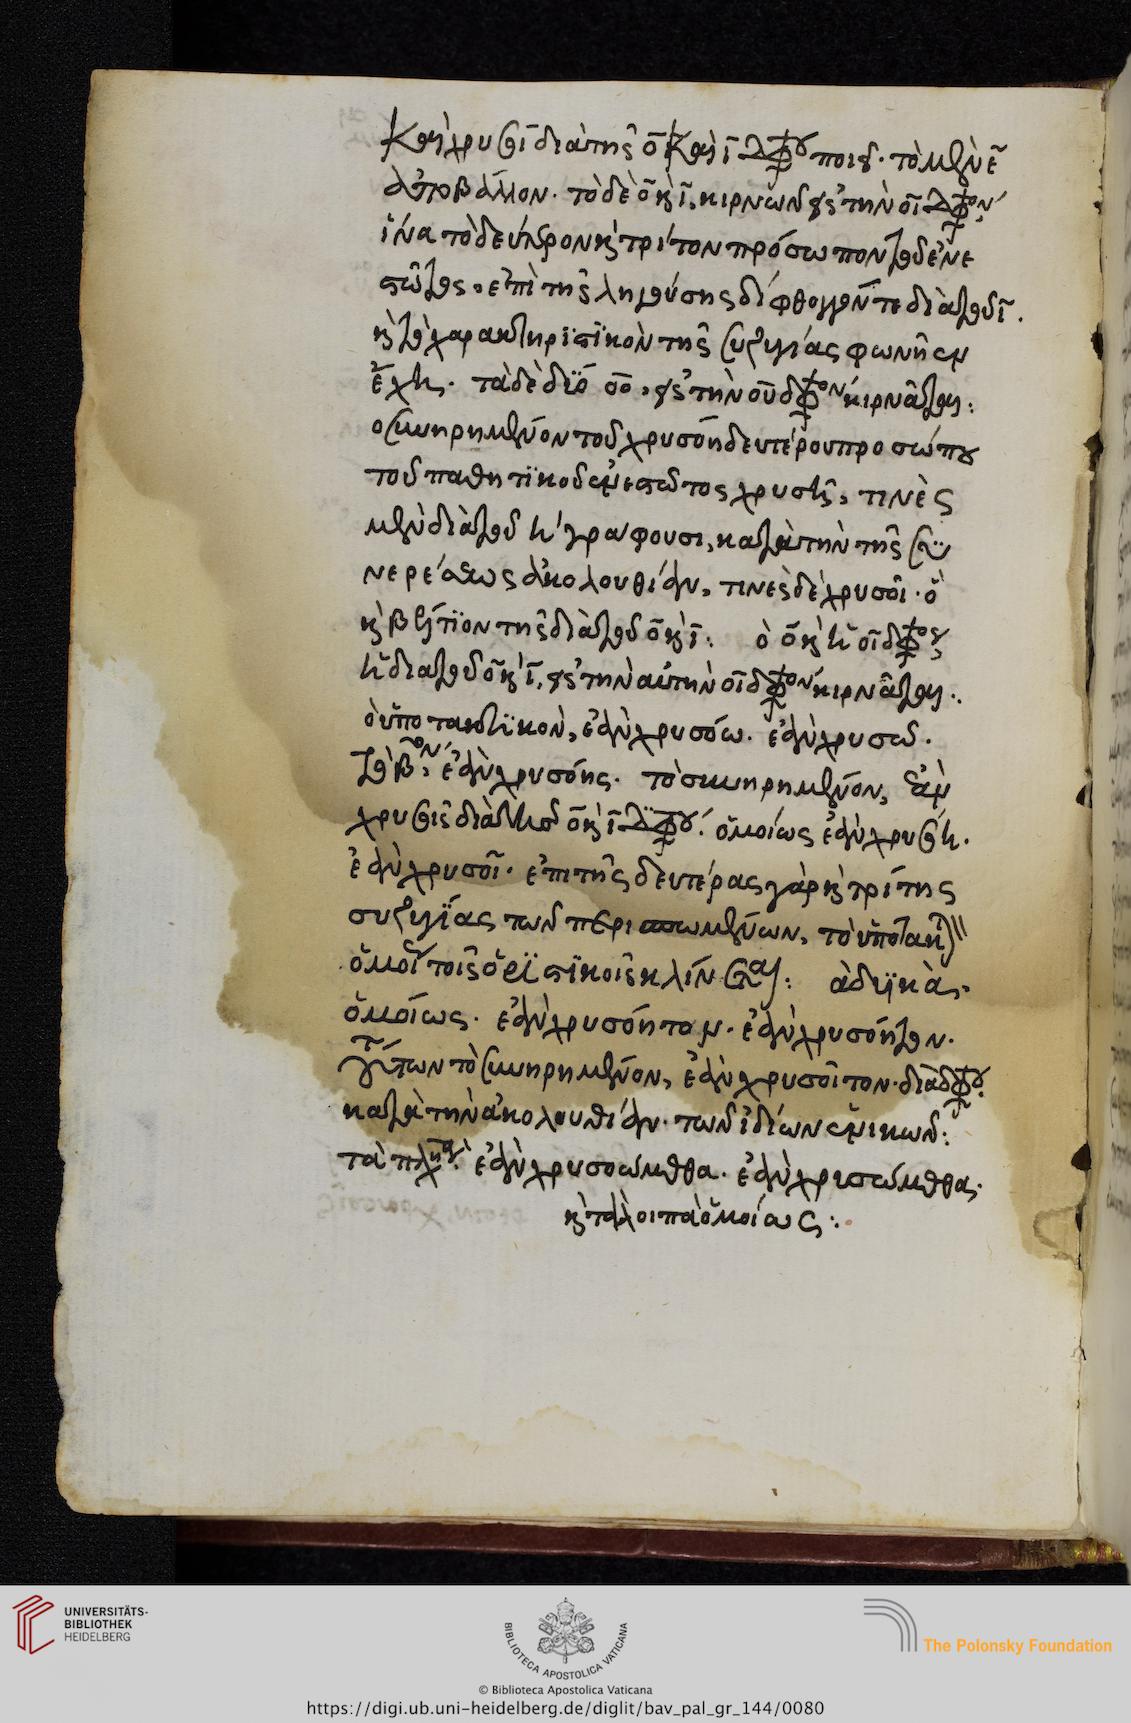 καὶ χρυσοῖ διὰ τῆς ο καὶ ι διφθόγγου ποιεῖ· τὸ μὲν ε
ἀποβάλλον· τὸ δὲ ο καὶ ι, κιρνῶν εἰς τὴν οι δίφθογγον,
ἵνα τὸ δεύτερον καὶ τρίτον πρόσωπον τοῦ ἐνε
στῶτος, ἐπὶ τῆς ληγούσης δίφθογγόν τε διὰ τοῦ ι.
καὶ τὸ χαρακτηριστικὸν τῆς συζυγίας φωνῆεν
ἔχει· τὰ δὲ δύο οο, εἰς τὴν ου δίφθογγον κιρνᾶται:
ὁ συνῃρημένον τοῦ χρυσόῃ δευτέρου προσώπου
τοῦ παθητικοῦ ἐνεστῶτος χρυσοῖ, τινὲς
μὲν διὰ τοῦ ει γράφουσι, κατὰ τὴν τῆς συ
ναιρέσεως ἀκολουθίαν, τινὲς δὲ χρυσοῖ· ὃ
καὶ βέλτιον τῆς διὰ τοῦ ο καὶ ι: ὁ ο καὶ ει οι δίφθογγος
ει διὰ τοῦ ο καὶ ι, εἰς τὴν αὐτὴν οι δίφθογγον κιρνᾶται.
ὁ ὑποτακτικὸν, ἐὰν χρυσόω. ἐὰν χρυσῶ.
τὸ βον, ἐὰν χρυσόῃς. τὸ συνῃρημένον, ἐὰν
χρυσοῖς διὰ τοῦ ο καὶ ι διφθόγγου. ὁμοίως ἐὰν χρυσόῃ.
ἐὰν χρυσοῖ. ἐπὶ τῆς δευτέρας γὰρ καὶ τρίτης
συζυγίας τῶν περισπωμένων, τὸ ὑποτακτι
ὁμοίως τοῖς ὁριστικοῖς κλίνεται: ἀδυϊκὰ,
ὁμοίως. ἐὰν χρυσόητον. ἐὰν χρυσόητον.
τούτων τὸ συνῃρημένον, ἐὰν χρυσοῖτον. διὰ διφθόγγου.
κατὰ τὴν ἀκολουθίαν τῶν ἰδίων ἑνικῶν:
τὰ πληθυντικά. ἐὰν χρυσοώμεθα. ἐὰν χρυσώμεθα.
καὶ τὰ λοιπὰ ὁμοίως:
UNIVERSITÄTS-
BIBLIOTHEK
HEIDELBERG
BIBLIOTECA APOSTOLICA VATICANA
The Polonsky Foundation
© Biblioteca Apostolica Vaticana
https://digi.ub.uni-heidelberg.de/diglit/bav_pal_gr_144/0080